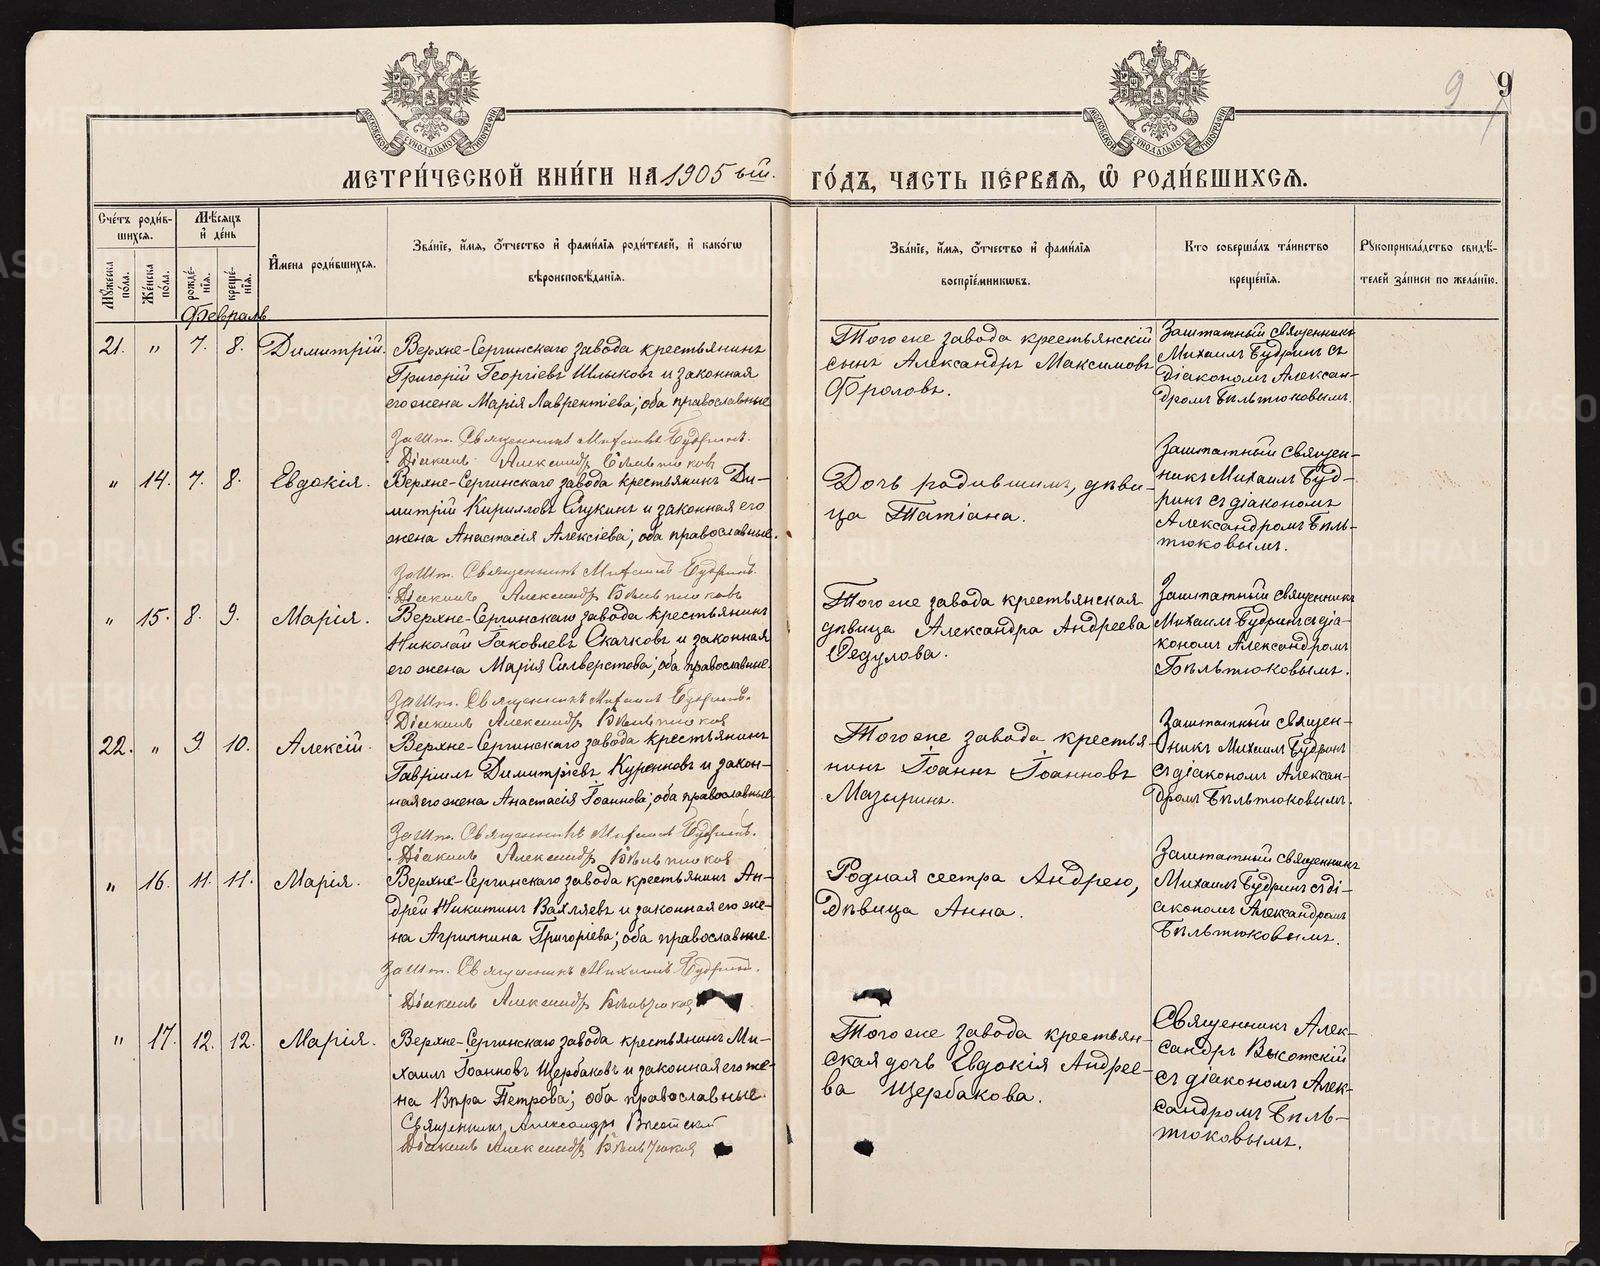 9 9
МЕТРИ́ЧЕСКОЙ КНИ́ГИ НА 1905 ый.
ГО́ДЪ, ЧАСТЬ ПЕ́РВАѦ, Ѡ҆ РОДИ́ВШИХСѦ.
Сче́тъ роди́в-
шихсѧ.
Мꙋ́жеска по́ла.
Же́нска по́ла.
Мѣ́сѧцъ
и҆ де́нь
рожде́-
нїѧ.
креще́-
нїѧ.
И҆мена роди́вшихсѧ.
Зва́нїе, и҆́мѧ, ѻ҆́тчество и҆ фами́лїѧ роди́телей, и҆ како́гѡ
вѣроисповѣ́данїѧ.
Зва́нїе, и҆́мѧ, ѻ҆́тчество и҆ фами́лїѧ
воспрїе́мникѡвъ.
Кто соверша́лъ та́инство
креще́нїѧ.
Рꙋкоприкла́дство свидѣ́-
телей за́писи по жела́нїю.
Февраль
21. " 7. 8. Димитрій.
Верхне-Сергинскаго завода крестьянинъ
Григорій Георгіевъ Шлыковъ и законная
его жена Марія Лаврентіева; оба православные
Зашт. Священникъ Михаилъ Будринъ.
Діаконъ Александръ Бѣльтюковъ
Того же завода крестьянскій
сынъ Александръ Максимовъ
Фроловъ.
Заштатный священникъ
Михаилъ Будринъ съ
діакономъ Алексан-
дромъ Бѣльтюковымъ.
" 14. 7. 8. Евдокія.
Верхне-Сергинскаго завода крестьянинъ Ди-
митрій Кирилловъ Слукинъ и законная его
жена Анастасія Алексіева; оба православные.
Зашт. Священникъ Михаилъ Будринъ.
Діаконъ Александръ Бѣльтюковъ
Дочь родившимъ, дѣви-
ца Татіана.
Заштатный священ-
никъ Михаилъ Буд-
ринъ съ діакономъ
Александромъ Бѣль-
тюковымъ.
" 15. 8. 9. Марія.
Верхне-Сергинскаго завода крестьянинъ
Николай Іаковлевъ Скачковъ и законная
его жена Марія Сильверстова; оба православные.
Зашт. Священникъ Михаилъ Будринъ.
Діаконъ Александръ Бѣльтюковъ
Того же завода крестьянская
дѣвица Александра Андреева
Федулова.
Заштатный священникъ
Михаилъ Будринъ съ діа-
кономъ Александромъ
Бѣльтюковымъ.
22. " 9 10. Алексій.
Верхне-Сергинскаго завода крестьянинъ
Гавріилъ Димитріевъ Куренковъ и закон-
ная его жена Анастасія Іоаннова; оба православные.
Зашт. Священникъ Михаилъ Будринъ.
Діаконъ Александръ Бѣльтюковъ
Того же завода крестья-
нинъ Іоаннъ Іоанновъ
Мазыринъ.
Заштатный священ-
никъ Михаилъ Будринъ
съ діакономъ Алексан-
дромъ Бѣльтюковымъ.
" 16. 11. 11. Марія.
Верхне-Сергинскаго завода крестьянинъ Ан-
дрей Никитинъ Вахляевъ и законная его же-
на Агриппина Григоріева; оба православные.
Зашт. Священникъ Михаилъ Будринъ.
Діаконъ Александръ Бѣльтюковъ
Родная сестра Андрею,
дѣвица Анна.
Заштатный священникъ
Михаилъ Будринъ съ ді-
акономъ Александромъ
Бѣльтюковымъ.
" 17. 12. 12. Марія.
Верхне-Сергинскаго завода крестьянинъ Ми-
хаилъ Іоанновъ Щербаковъ и законная его же-
на Вѣра Петрова; оба православные.
Священникъ Александръ Высотскій
Діаконъ Александръ Бѣльтюковъ
Того же завода крестьян-
ская дочь Евдокія Андрее-
ва Щербакова.
Священникъ Алек-
сандръ Высотскій
съ діакономъ Алек-
сандромъ Бѣль-
тюковымъ.